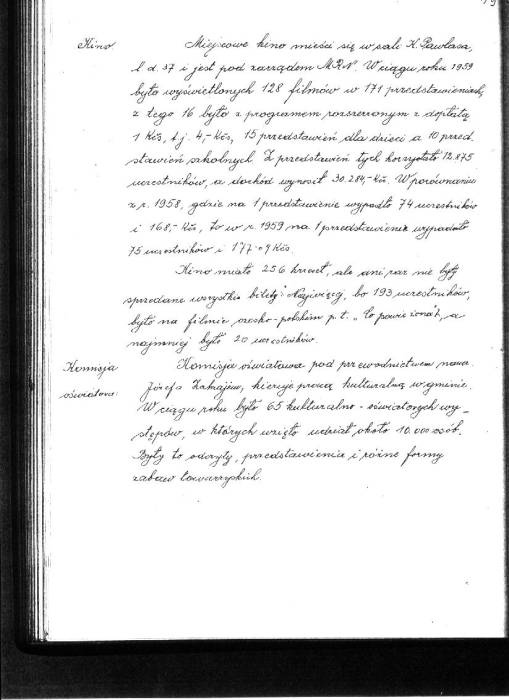 Kino.
Miejscowe kino mieści się w sali K. Pawlasa,
l. d. 37 i jest pod zarządem MRN. W ciągu roku 1959
było wyświetlonych 128 filmów w 171 przedstawieniach,
z tego 16 było z programem rozszerzonym z dopłatą
1 Kčs, t.j. 4,- Kčs, 15 przedstawień dla dzieci a 10 przed
stawień szkolnych. Z przedstawień tych korzystało 12.875
uczestników, a dochód wynosił 30.284,- Kčs. W porównaniu
z r. 1958, gdzie na 1 przedstawienie wypadło 74 uczestników
i 168,- Kčs, to w r. 1959 na 1 przedstawienie wypadało
75 uczestników i 177·09 Kčs.
Kino miało 256 krzeseł, ale ani raz nie były
sprzedane wszystkie bilety. Najwięcej, bo 193 uczestników,
było na filmie czesko-polskim p.t. „Co powie żona", a
najmniej było 20 uczestników.
Komisja
oświatowa:
Komisja oświatowa pod przewodnictwem naucz.
Józefa kieruje pracą kulturalną w gminie.
W ciągu roku było 65 kulturalno-oświatowych wy_
stępów, w których wzięło udział około 10.000 osób.
Były to odczyty, przedstawienia i różne formy
zabaw towarzyskich.